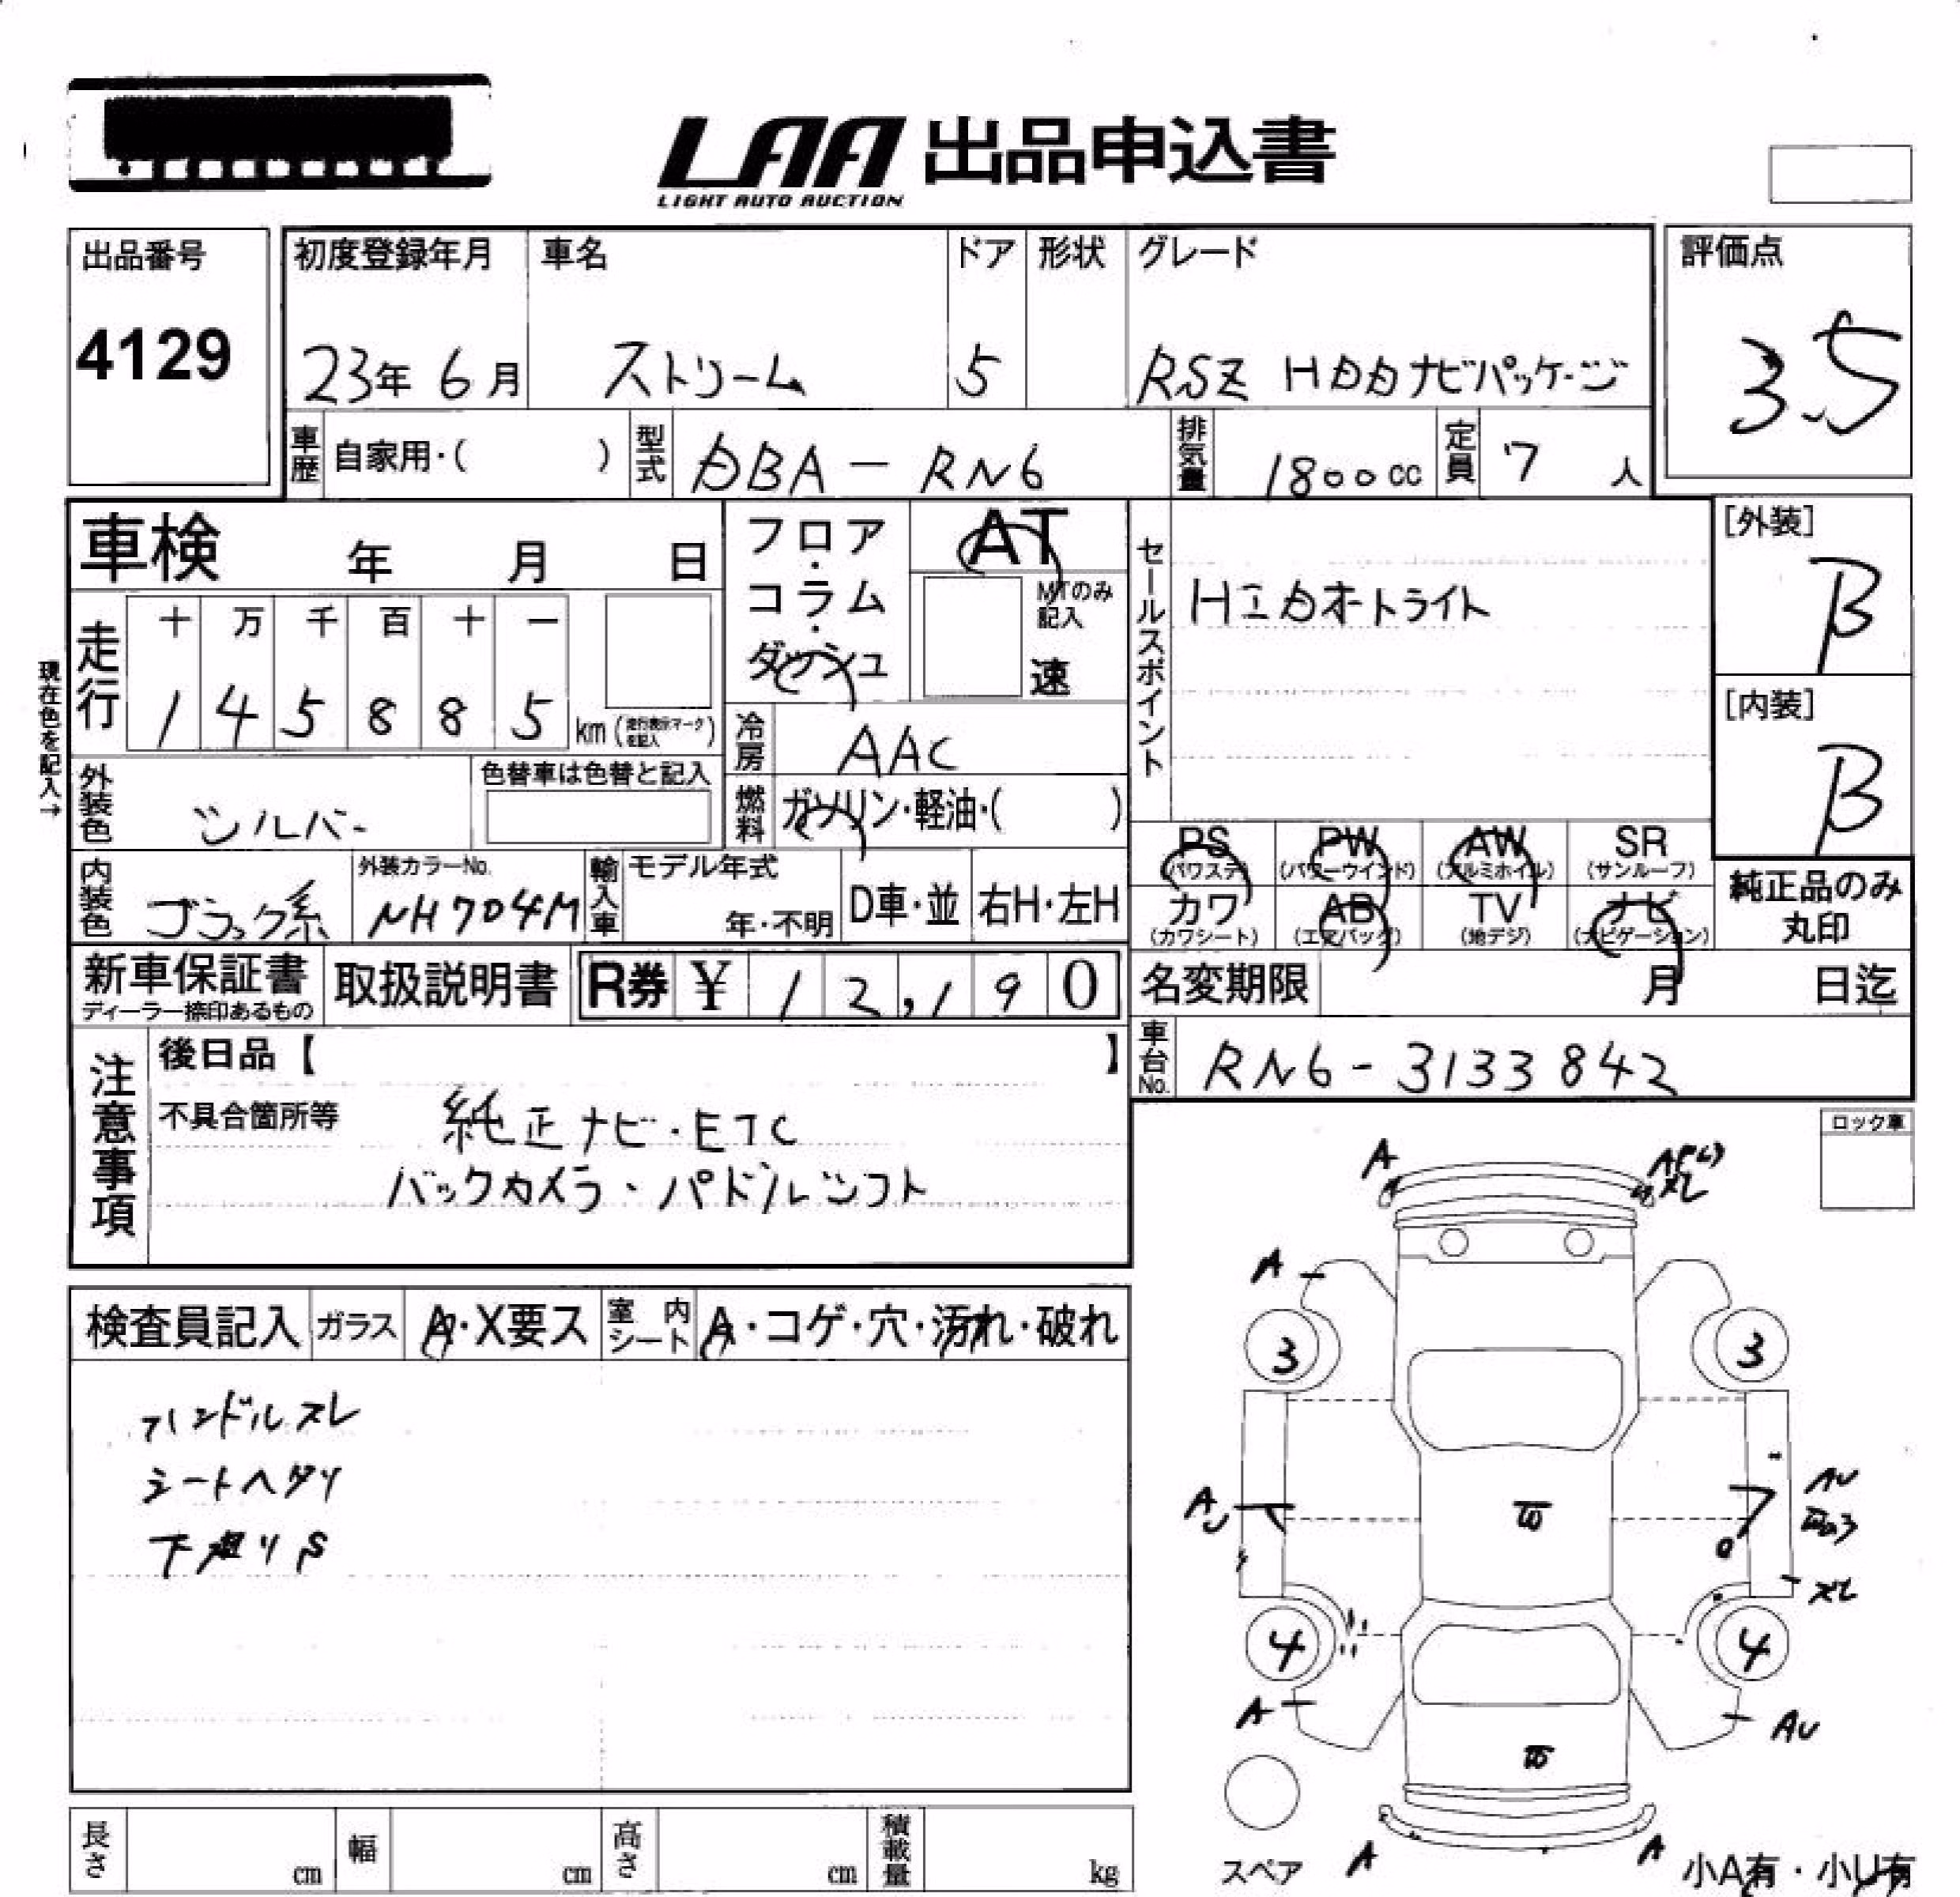 LAA 出品申込書
LIGHT AUTO AUCTION
出品番号
4129
初度登録年月
23年 6月
車名
ストリーム
ドア
5
形状
グレード
RSZ HDDナビパッケージ
評価点
3.5
車歴 自家用・( )
型式 DBA-RN6
排気量 1800cc
定員 7人
車検 年 月 日
フロア・コラム・ダッシュ
AT
MTのみ記入
速
セールスポイント
HIDオートライト
[外装]
B
[内装]
B
現在色を記入→
走行
十 万 千 百 十 一
1 4 5 8 8 5 km (走行表示マークを記入)
冷房 AAC
外装色 シルバー
色替車は色替と記入
燃料 ガソリン・軽油・( )
内装色 ブラック系
外装カラーNo.
NH704M
輸入車
モデル年式
年・不明
D車・並
右H・左H
PS (パワステ)
PW (パワーウインド)
AW (アルミホイル)
SR (サンルーフ)
カワ (カワシート)
AB (エアバッグ)
TV (地デジ)
ナビ (ナビゲーション)
純正品のみ丸印
新車保証書
ディーラー捺印あるもの
取扱説明書
R券 ¥ 12,190
名変期限 月 日迄
車台No. RN6-3133842
注意事項
後日品【 】
不具合箇所等
純正ナビ・ETC
バックカメラ・パドルシフト
ロック車
検査員記入
ガラス A・X要ス
室内シート A・コゲ・穴・汚れ・破れ
ハンドルスレ
シートヘタリ
下廻りS
A
スレ
A
3
3
A
AU
4
4
スレ
A
AU
スペア
A
A
小A有・小U有
長さ cm
幅 cm
高さ cm
積載量 kg